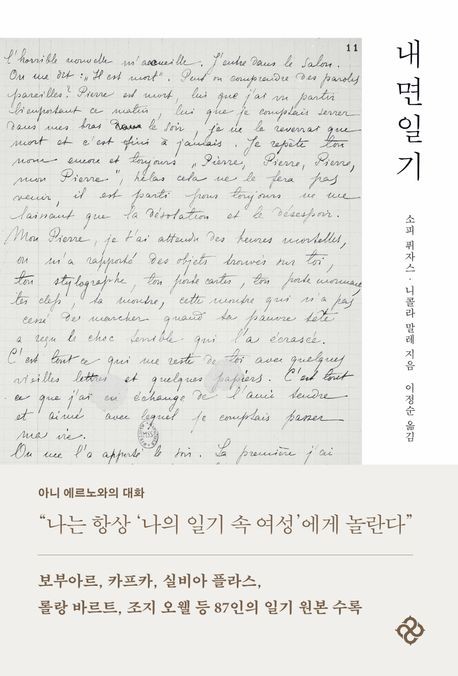 11
l'horrible nouvelle m'accueille. J'entre dans le salon.
On me dit : „Il est mort". Peut on comprendre des paroles
pareilles? Pierre est mort, lui que j'ai vu partir
bien portant ce matin, lui que je comptais serrer
dans mes bras le soir, je ne le reverrai que
mort et c'est fini à jamais. Je repète ton
nom encore et toujours „Pierre, Pierre, Pierre,
mon Pierre", hélas cela ne le fera pas
venir, il est parti pour toujours ne me
laissant que la désolation et le désespoir.
Mon Pierre, je t'ai attendu des heures mortelles,
on m'a rapporté des objets trouvés sur toi,
ton stylographe, ton porte cartes, ton porte monnaie,
tes clefs, ta montre, cette montre qui n'a pas
cessé de marcher quand ta pauvre tête
a reçu le choc terrible qui l'a écrasée.
C'est tout ce qui me reste de toi avec quelques
vieilles lettres et quelques papiers. C'est tout
ce que j'ai en échange de l'ami tendre
et aimé avec lequel je comptais passer
ma vie.
On me l'a apporté le soir. La première j'ai
내면일기
소피 퓌자스·니콜라 말레 지음
이정순 옮김
아니 에르노와의 대화
“나는 항상 ‘나의 일기 속 여성’에게 놀란다”
보부아르, 카프카, 실비아 플라스,
롤랑 바르트, 조지 오웰 등 87인의 일기 원본 수록